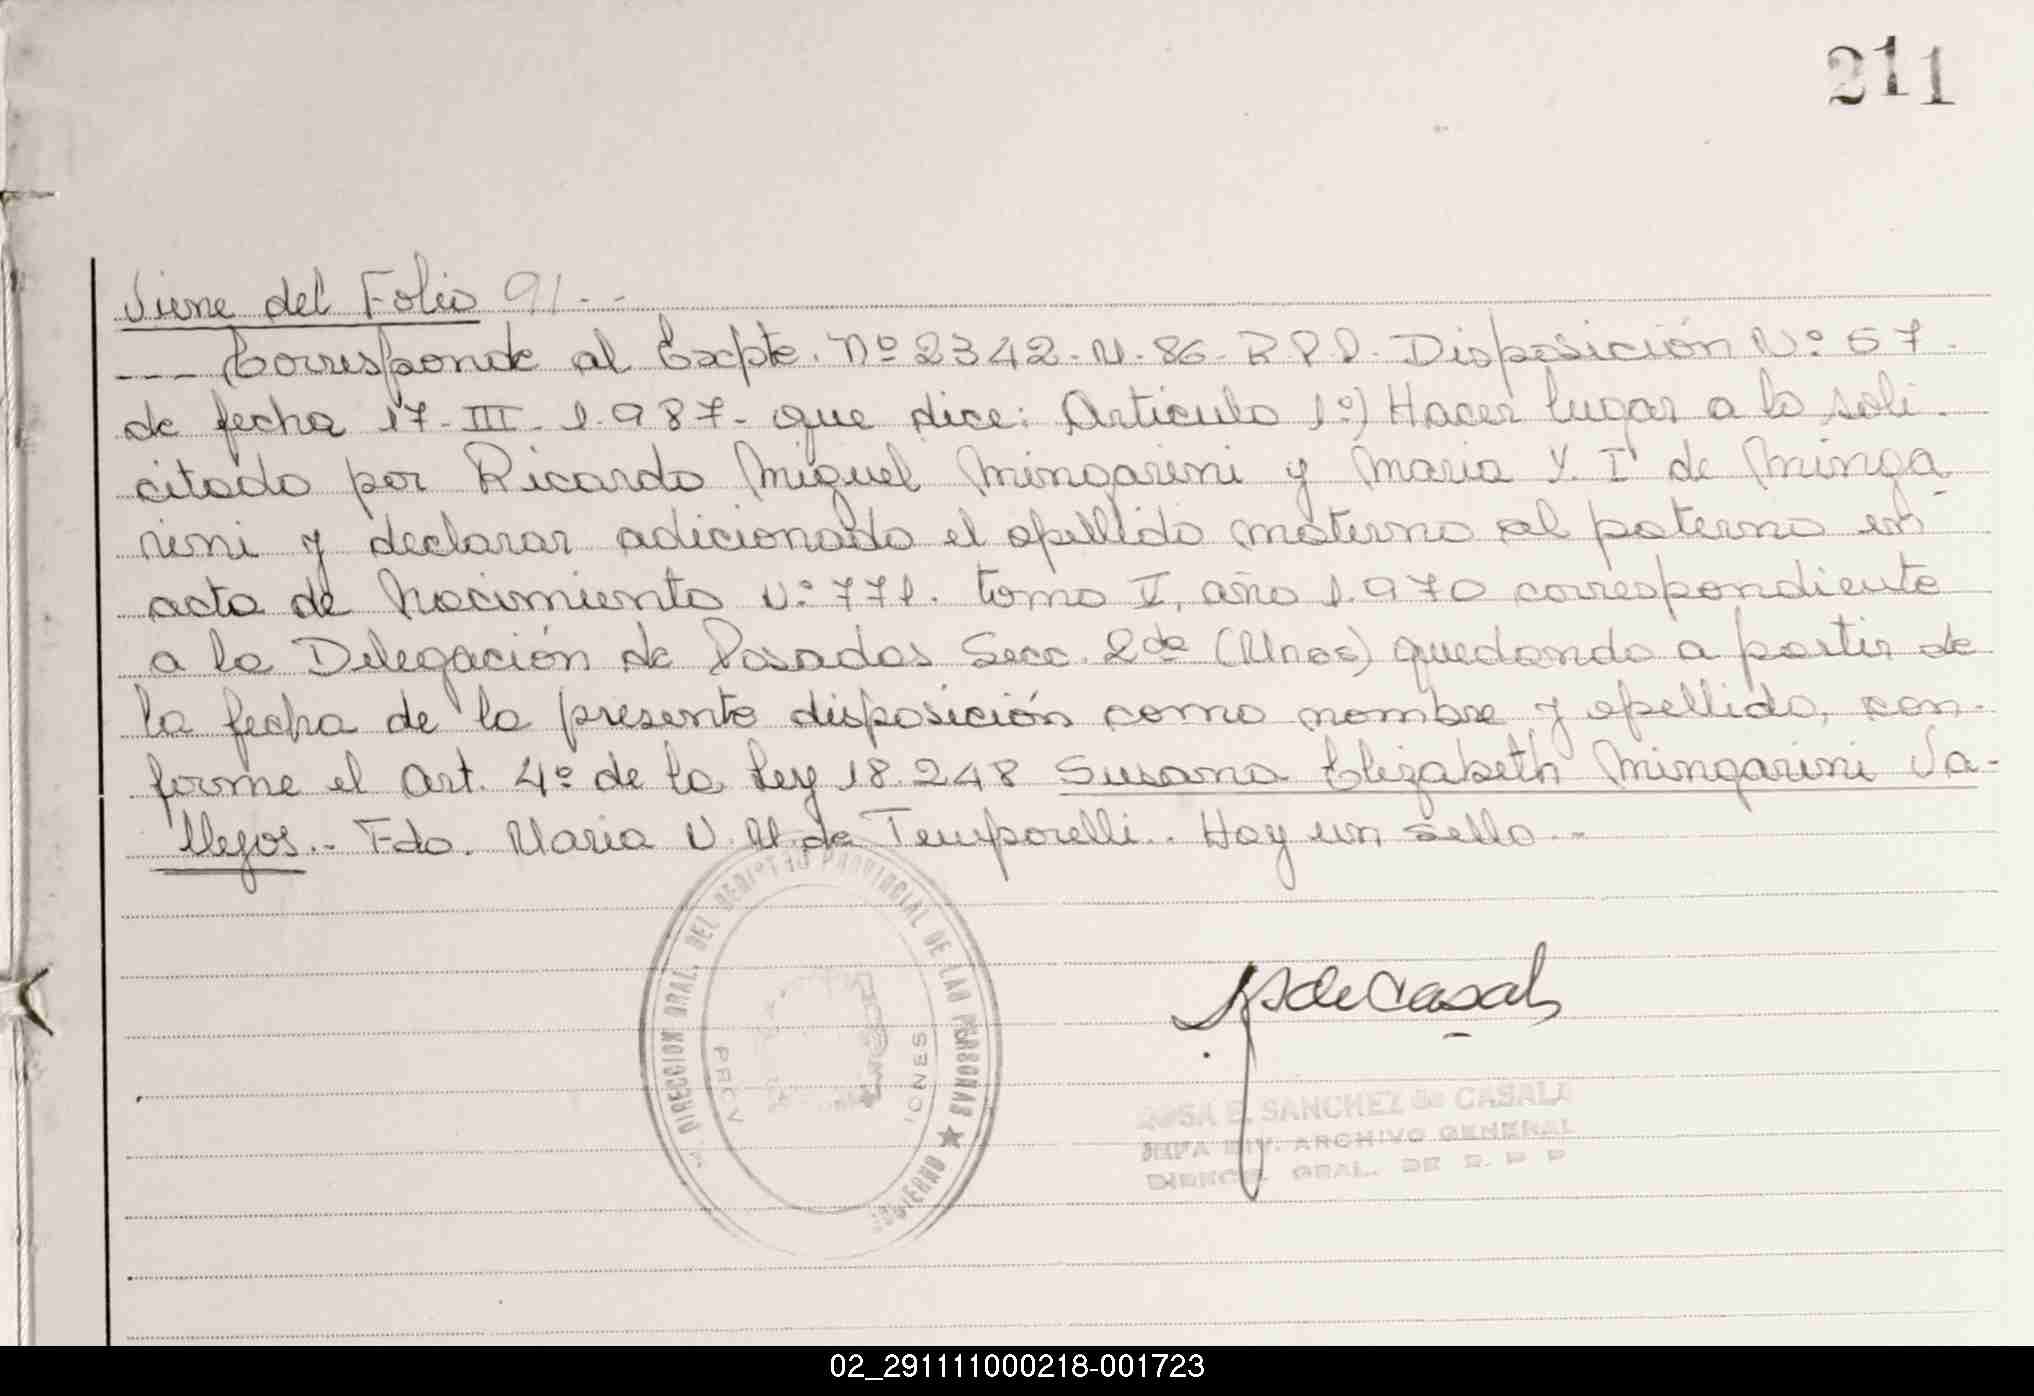 211
Viene del Folio 91.--
--- Corresponde al Expte. Nº 2342-N-86-RPP. Disposición Nº 67.
de fecha 17-III-1.987- que dice: Articulo 1º) Hacer lugar a lo soli-
citado por Ricardo Miguel Mingarini y Maria V. I de Minga-
rini y declarar adicionado el apellido materno al paterno en
acta de Nacimiento Nº 771. tomo I, año 1.970 correspondiente
a la Delegación de Posadas Secc. 2da (Unos) quedando a partir de
la fecha de la presente disposición como nombre y apellido, con-
forme el Art. 4º de la Ley 18.248 Susana Elizabeth Mingarini Va-
llejos.- Fdo. Maria N. M. de Temporelli.. Hay un sello.-
DIRECCION GRAL. DEL REGISTRO PROVINCIAL DE LAS PERSONAS ★
GOBIERNO
deCasals
ROSA E. SANCHEZ de CASALS
JEFA DIV. ARCHIVO GENERAL
DIRECC. GRAL. DE R. P P
02_291111000218-001723